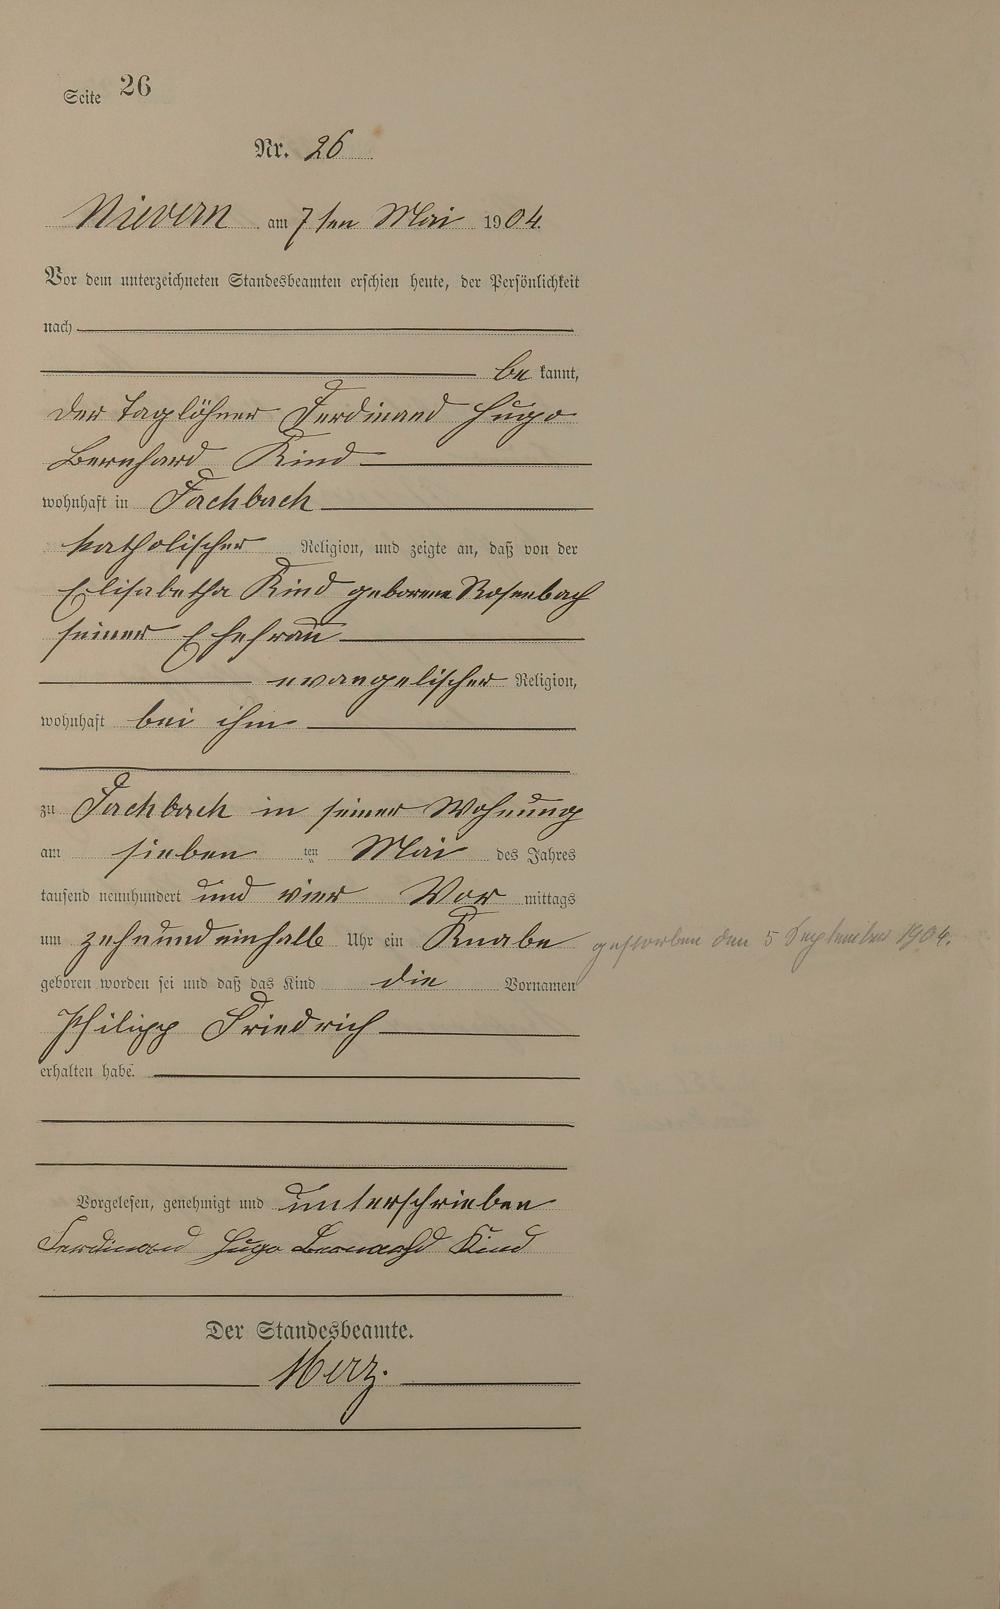 Seite 26
Nr. 26
Nievern am 7ten Mai 1904.
Vor dem unterzeichneten Standesbeamten erschien heute, der Persönlichkeit
nach
bekannt,
der Taglöhner Ferdinand Hugo
Bernhard Kind
wohnhaft in Fachbach
katholischer Religion, und zeigte an, daß von der
Elisabetha Kind geborene Rosenbach
seiner Ehefrau
evangelischer Religion,
wohnhaft bei ihm
zu Fachbach in seiner Wohnung
am sieben ten Mai des Jahres
tausend neunhundert und vier Vor mittags
um zehnundeinhalb Uhr ein Knabe
gestorben den 5 September 1904.
geboren worden sei und daß das Kind die Vornamen
Philipp Friedrich
erhalten habe.
Vorgelesen, genehmigt und unterschrieben
Ferdinand Hugo Bernhard Kind
Der Standesbeamte.
Merz.